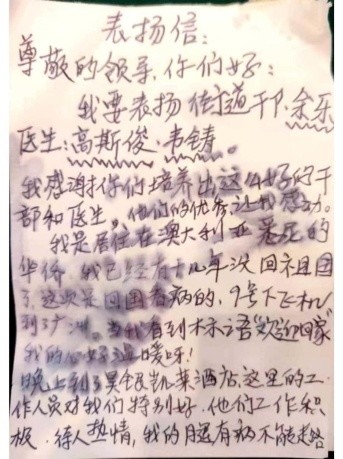 表扬信:
尊敬的领导,你们好:
我要表扬街道干P.余乐
医生:高斯俊:韦铸。
我感谢你们培养出这么好的干
部和医生,他们的优秀让我感动。
我是居住在澳大利亚悉尼的
华侨,我已经有十几年没回祖国
了,这次是回国看病的,9号下飞机
到广州。当我看到标语"欢迎回家"
我的心好温暖呀!
晚上到了昊银凯莱酒店,这里的工
作人员对我们特别好.他们工作积
极.待人热情,我的腿有病不能走路